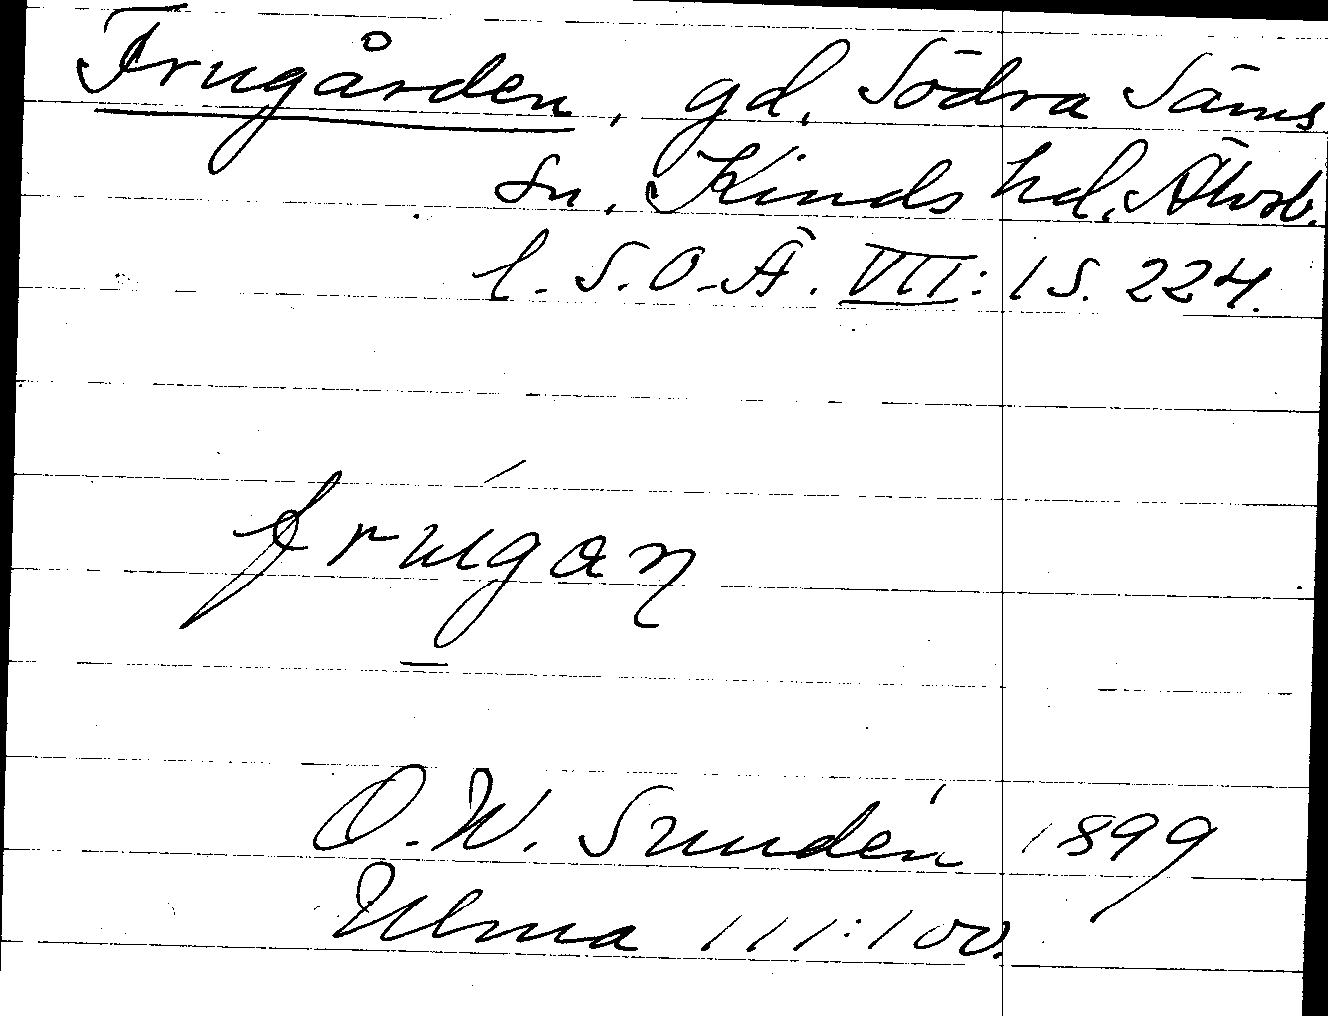 Frugården, gd, Södra Säms
sn, Kinds hd, Älvsb.
l. S.O.Ä. VII:1 S. 224.
frúgaɳ
O.W. Sundén 1899
Ulma 111:100.